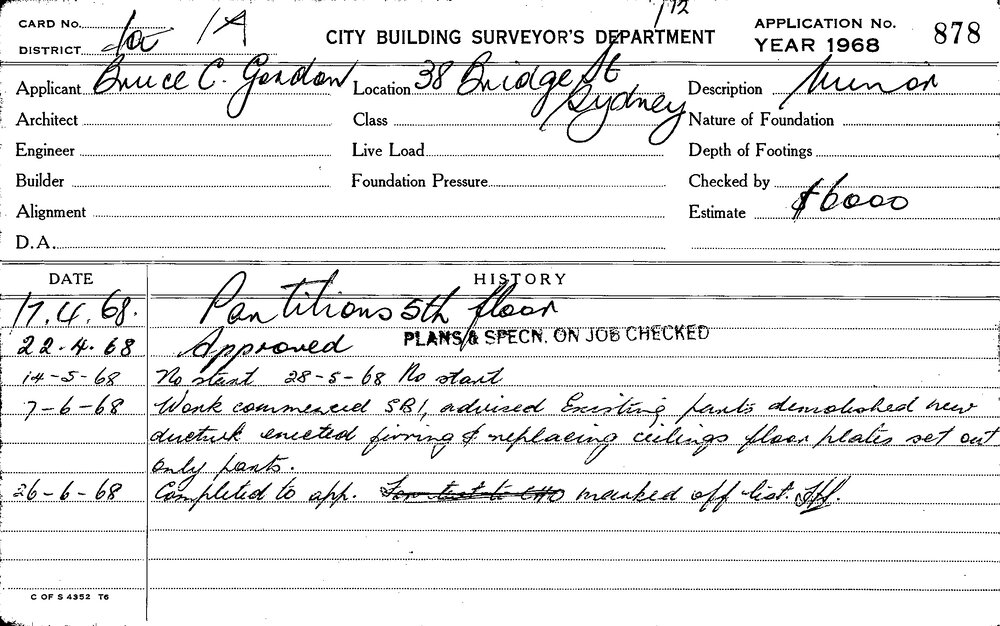 1 72
CARD No. 1A
DISTRICT
CITY BUILDING SURVEYOR'S DEPARTMENT
APPLICATION No. 878
YEAR 1968
Applicant Bruce C. Gordon Location 38 Bridge St Sydney Description Minor
Architect Class Nature of Foundation
Engineer Live Load Depth of Footings
Builder Foundation Pressure Checked by
Alignment Estimate $6000
D.A.
DATE HISTORY
17.4.68. Partitions 5th floor
22.4.68 Approved PLANS & SPECN. ON JOB CHECKED
14-5-68 No start 28-5-68 No start
7-6-68 Work commenced SB1, advised Existing parts demolished new
ductwk erected firring & replacing ceilings floor plates set out
only parts.
26-6-68 Completed to app. marked off list.
C OF S 4352 T6